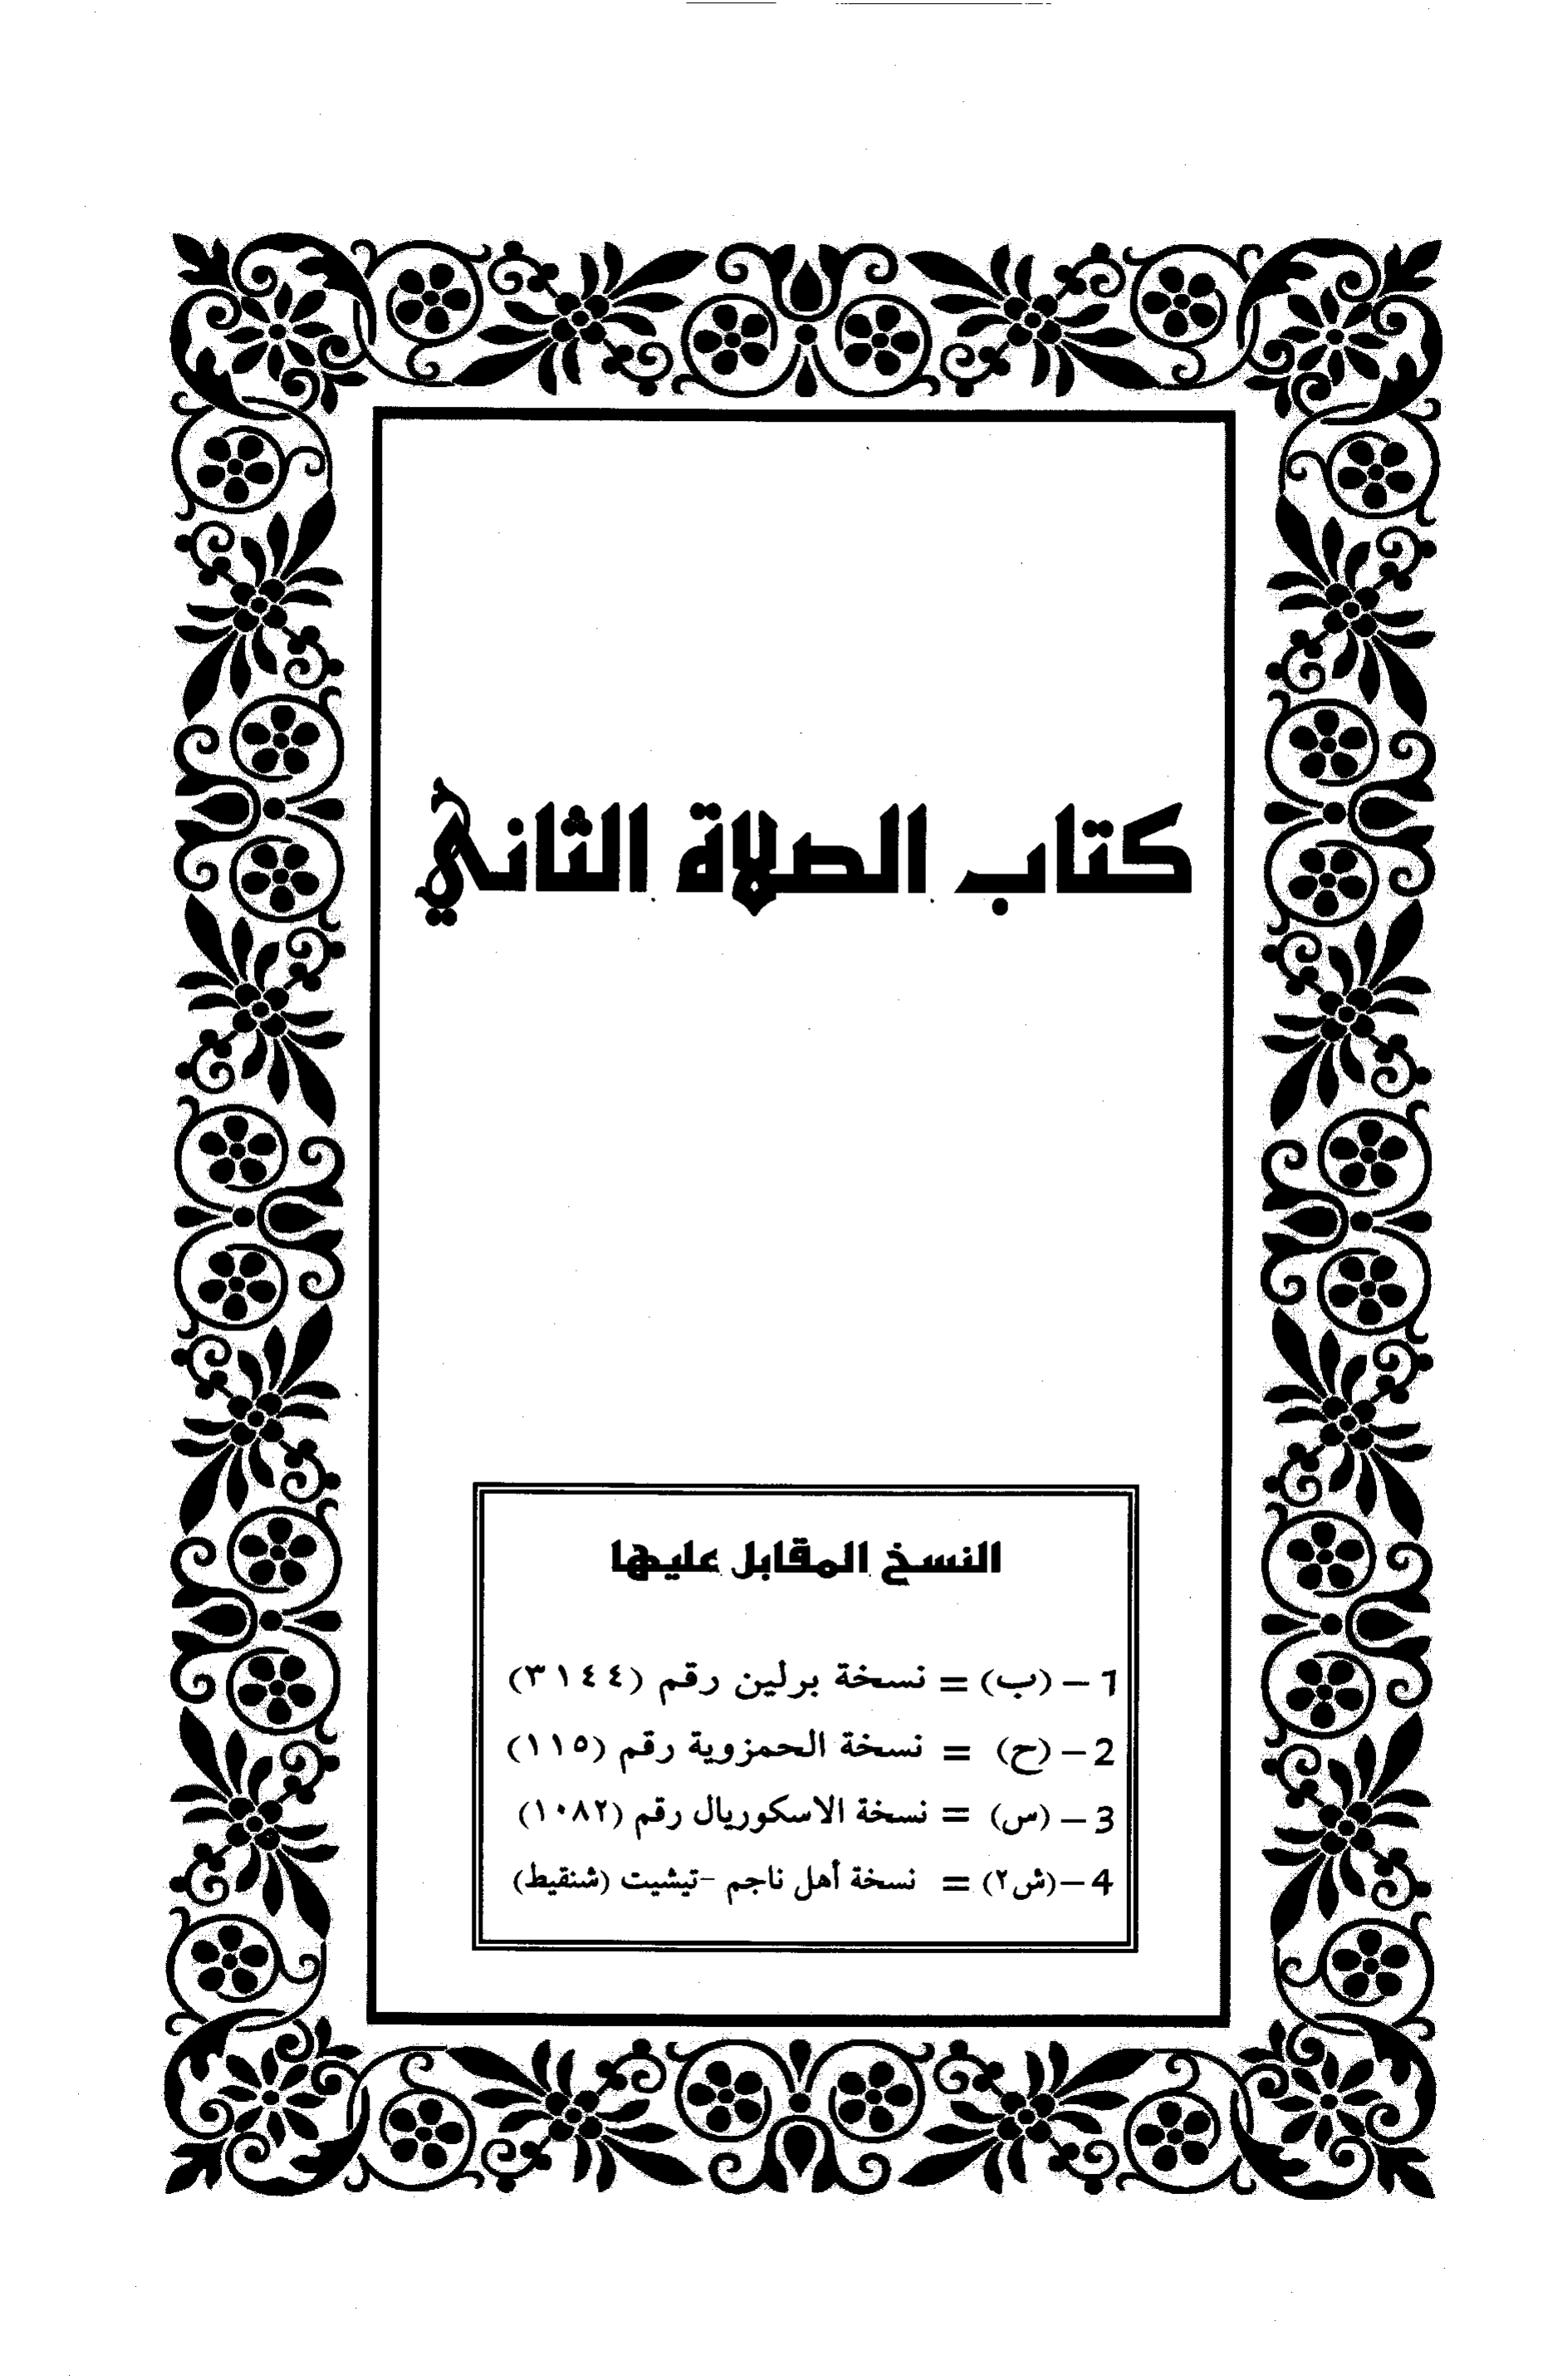 كتاب الصلاة الثاني
النسخ المقابل عليها
1- (ب) = نسخة برلين رقم (٣١٤٤)
2- (ح) = نسخة الحمزوية رقم (١١٥)
3- (س) = نسخة الاسكوريال رقم (١٠٨٢)
4- (ش٢) = نسخة أهل ناجم -تيشيت (شنقيط)